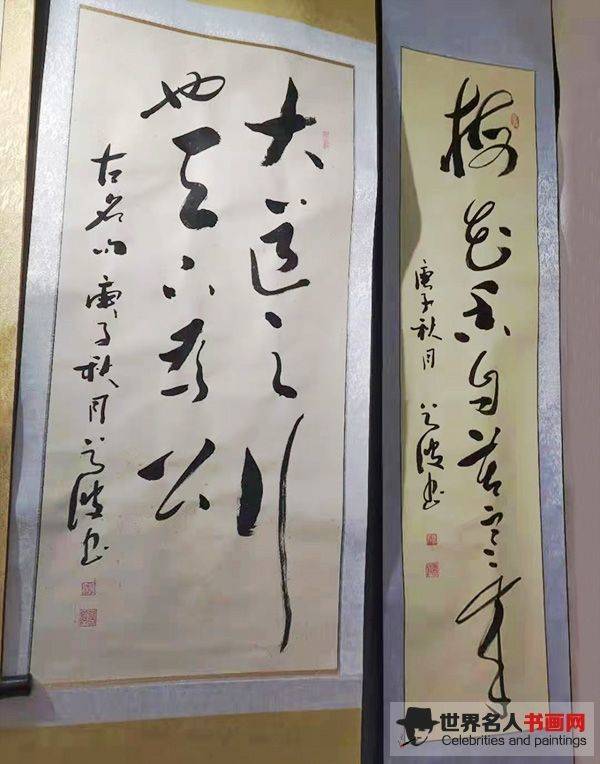 大道之行
也天下为公
古名句庚子秋月波书
梅花香自苦寒来
庚子秋月波书
世界名人书画网
Celebrities and paintings